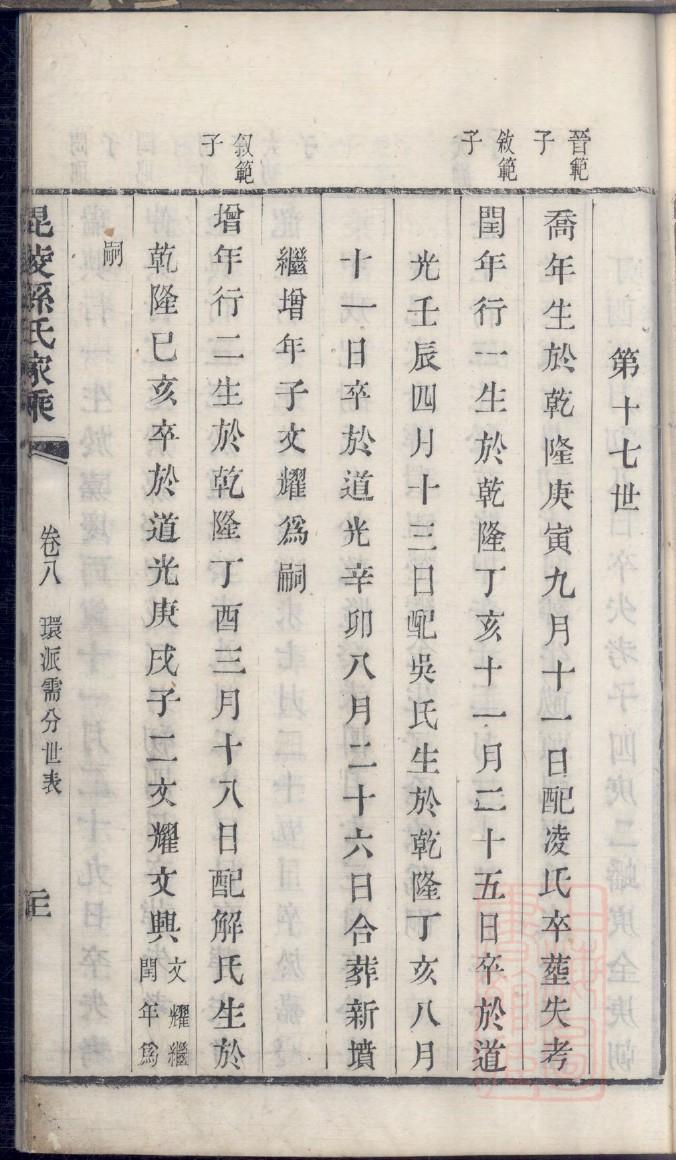 第十七世
晉範
子
喬年生於乾隆庚寅九月十一日配凌氏卒葬失考
敘範
子
閏年行一生於乾隆丁亥十一月二十五日卒於道
光壬辰四月十三日配吳氏生於乾隆丁亥八月
十一日卒於道光辛卯八月二十六日合葬新墳
繼增年子文耀爲嗣
敘範
子
增年行二生於乾隆丁酉三月十八日配解氏生於
乾隆已亥卒於道光庚戌子二文耀文興
文耀繼
閏年爲
嗣
毘陵孫氏家乘
卷八
環派需分世表